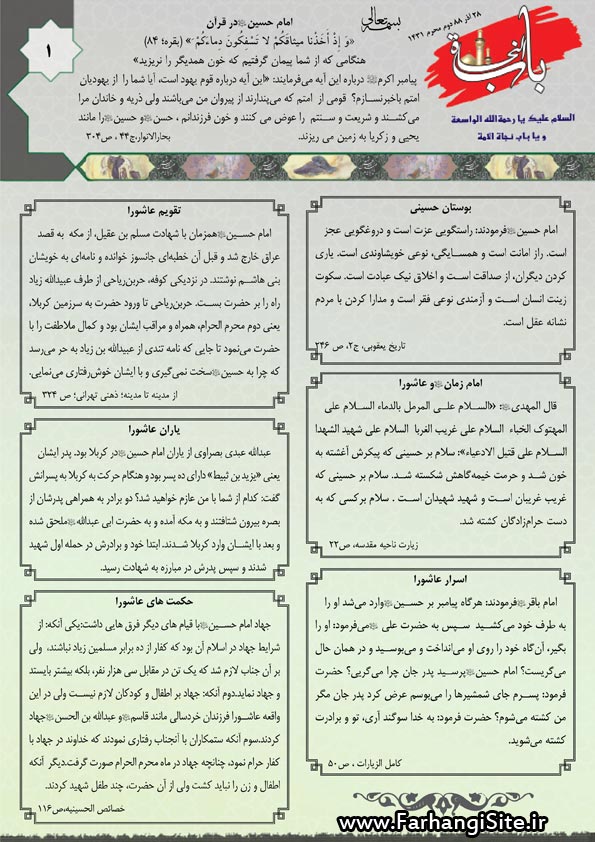 ۲۸ آذر ۸۸ دوم محرم ۱۴۳۱
باب النجاة
السلام علیک یا رحمةالله الواسعة
و یا باب نجاة الامة
بسمه تعالی
۱
امام حسین در قرآن
«وَ إِذْ أَخَذْنا میثاقَکُمْ لا تَسْفِکُونَ دِماءَکُمْ» (بقره؛ ۸۴)
هنگامی که از شما پیمان گرفتیم که خون همدیگر را نریزید»
پیامبر اکرم درباره این آیه می‌فرمایند: «این آیه درباره قوم یهود است، آیا شما را از یهودیان
امتم باخبرنسازم؟ قومی از امتم که می‌پندارند از پیروان من می‌باشند ولی ذریه و خاندان مرا
می‌کشند و شریعت و سنتم را عوض می کنند و خون فرزندانم ، حسن و حسین را مانند
یحیی و زکریا به زمین می ریزند.
بحارالانوار،ج۴۴ ، ص۳۰۴
بوستان حسینی
امام حسین فرمودند: راستگویی عزت است و دروغگویی عجز
است. راز امانت است و همسایگی، نوعی خویشاوندی است. یاری
کردن دیگران، از صداقت است و اخلاق نیک عبادت است. سکوت
زینت انسان است و آزمندی نوعی فقر است و مدارا کردن با مردم
نشانه عقل است.
تاریخ یعقوبی، ج۲، ص ۲۴۶
امام زمان و عاشورا
قال المهدی: «السلام علی المرمل بالدماء السلام علی
المهتوک الخباء السلام علی غریب الغربا السلام علی شهید الشهدا
السلام علی قتیل الادعیاء»؛ سلام بر حسینی که پیکرش آغشته به
خون شد و حرمت خیمه‌گاهش شکسته شد. سلام بر حسینی که
غریب غریبان است و شهید شهیدان است . سلام برکسی که به
دست حرام‌زادگان کشته شد.
زیارت ناحیه مقدسه، ص۲۲
اسرار عاشورا
امام باقر فرمودند: هرگاه پیامبر بر حسین وارد می‌شد او را
به طرف خود می‌کشید سپس به حضرت علی می‌فرمود: او را
بگیر، آن‌گاه خود را روی او می‌انداخت و می‌بوسید و در همان حال
می‌گریست؟ امام حسین پرسید پدر جان چرا می‌گریی؟ حضرت
فرمود: پسرم جای شمشیرها را می‌بوسم عرض کرد پدر جان مگر
من کشته می‌شوم؟ حضرت فرمود: به خدا سوگند آری، تو و برادرت
کشته می‌شوید.
کامل الزیارات ، ص۵۰
تقویم عاشورا
امام حسین همزمان با شهادت مسلم بن عقیل، از مکه به قصد
عراق خارج شد و قبل آن خطبه‌ای جانسوز خوانده و نامه‌ای به خویشان
بنی هاشم نوشتند. در نزدیکی کوفه، حربن‌ریاحی از طرف عبیدالله زیاد
راه را بر حضرت بست. حربن‌ریاحی تا ورود حضرت به سرزمین کربلا،
یعنی دوم محرم الحرام، همراه و مراقب ایشان بود و کمال ملاطفت را با
حضرت می‌نمود تا جایی که نامه تندی از عبیدالله بن زیاد به حر می‌رسد
که چرا به حسین سخت نمی‌گیری و با ایشان خوش‌رفتاری می‌نمایی.
از مدینه تا مدینه؛ ذهنی تهرانی؛ ص ۳۲۴
یاران عاشورا
عبدالله عبدی بصراوی از یاران امام حسین در کربلا بود. پدر ایشان
یعنی «یزید بن ثبیط» دارای ده پسر بود و هنگام حرکت به کربلا به پسرانش
گفت: کدام از شما با من عازم خواهید شد؟ دو برادر به همراهی پدرشان از
بصره بیرون شتافتند و به مکه آمده و به حضرت ابی عبدالله ملحق شده
و بعد با ایشان وارد کربلا شدند. ابتدا خود و برادرش در حمله اول شهید
شدند و سپس پدرش در مبارزه به شهادت رسید.
حکمت های عاشورا
جهاد امام حسین با قیام های دیگر فرق هایی داشت:یکی آنکه: از
شرایط جهاد در اسلام آن بود که کفار از ده برابر مسلمین زیاد نباشند، ولی
بر آن جناب لازم شد که یک تن در مقابل سی هزار نفر، بلکه بیشتر بایستد
و جهاد نماید.دوم آنکه: جهاد بر اطفال و کودکان لازم نیست ولی در این
واقعه عاشورا فرزندان خردسالی مانند قاسم و عبدالله بن الحسن جهاد
کردند.سوم آنکه ستمکاران با آنجناب رفتاری نمودند که خداوند در جهاد با
کفار حرام نمود، چنانکه جهاد در ماه محرم الحرام صورت گرفت.دیگر آنکه
اطفال و زن را نباید کشت ولی از آن حضرت، چند طفل شهید کردند.
خصائص الحسینیه،ص۱۱۶
www.FarhangiSite.ir